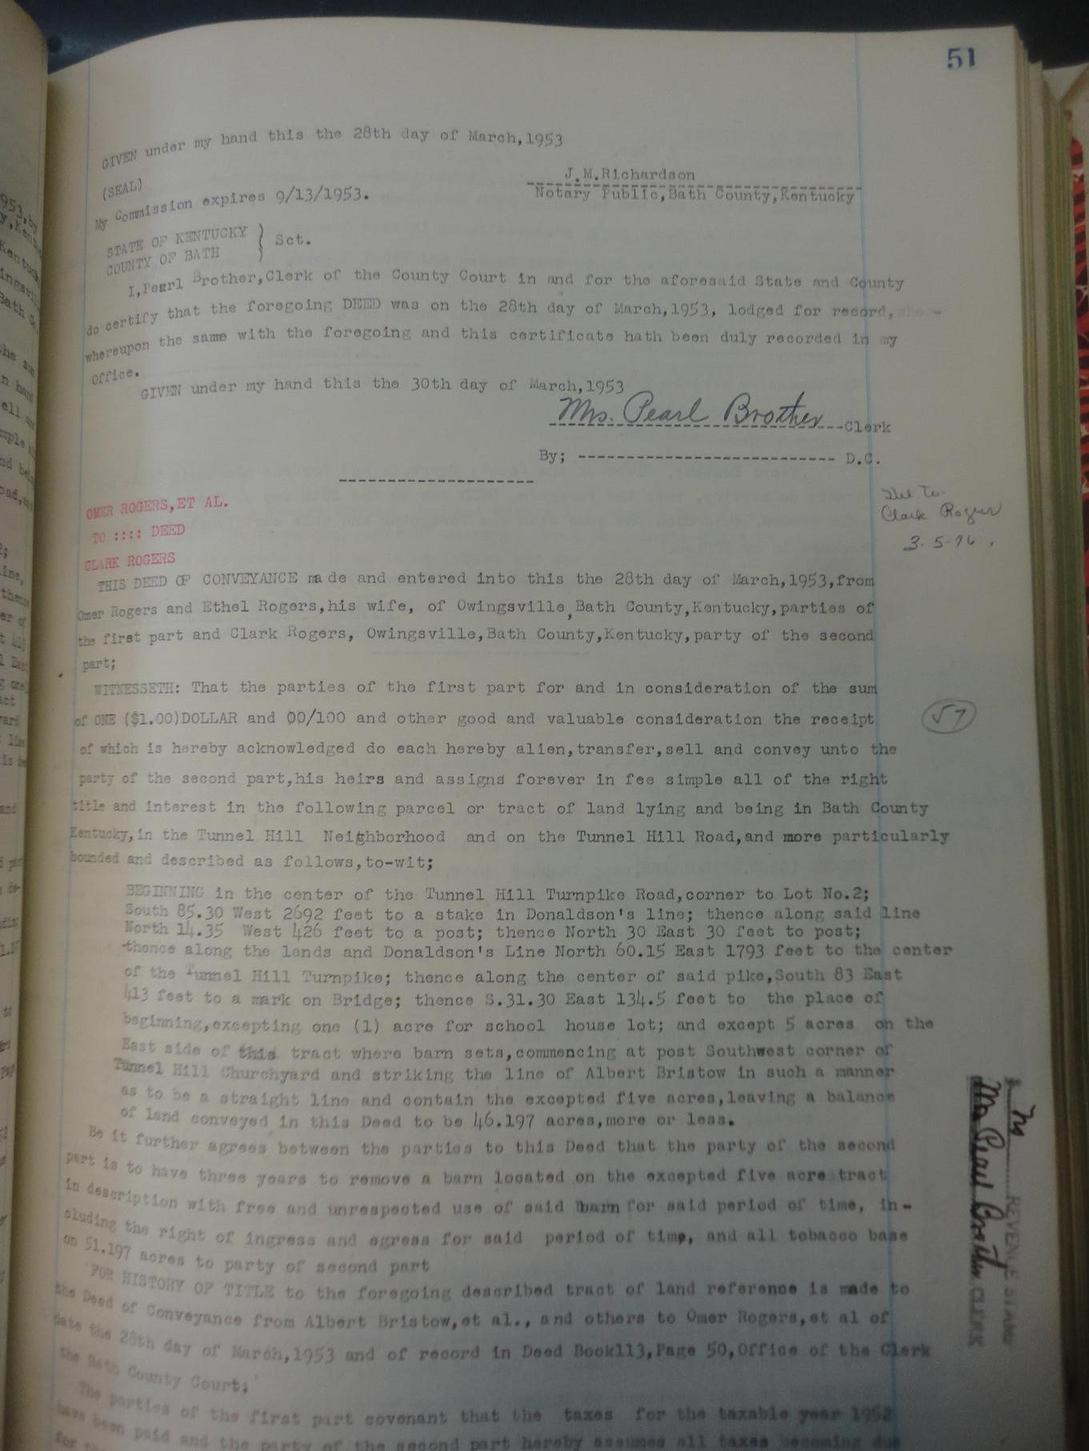 51
GIVEN under my hand this the 28th day of March,1953
(SEAL)
J.M.Richardson
My Commission expires 9/13/1953.
Notary Public,Bath County,Kentucky
STATE OF KENTUCKY
COUNTY OF BATH } Sct.
I,Pearl Brother,Clerk of the County Court in and for the aforesaid State and County
do certify that the foregoing DEED was on the 28th day of March,1953, lodged for record,
whereupon the same with the foregoing and this certificate hath been duly recorded in my
office.
GIVEN under my hand this the 30th day of March,1953
Mrs. Pearl Brother Clerk
By; -------------------------- D.C.
-------------------
OMER ROGERS,ET AL.
TO :::: DEED
CLARK ROGERS
Del To.
Clark Rogers
3-5-76.
THIS DEED OF CONVEYANCE made and entered into this the 28th day of March,1953,from
Omer Rogers and Ethel Rogers,his wife, of Owingsville,Bath County,Kentucky,parties of
the first part and Clark Rogers, Owingsville,Bath County,Kentucky,party of the second
part;
WITNESSETH: That the parties of the first part for and in consideration of the sum
of ONE ($1.00)DOLLAR and 00/100 and other good and valuable consideration the receipt
57
of which is hereby acknowledged do each hereby alien,transfer,sell and convey unto the
party of the second part,his heirs and assigns forever in fee simple all of the right
title and interest in the following parcel or tract of land lying and being in Bath County
Kentucky,in the Tunnel Hill Neighborhood and on the Tunnel Hill Road,and more particularly
bounded and described as follows,to-wit;
BEGINNING in the center of the Tunnel Hill Turnpike Road,corner to Lot No.2;
South 85.30 West 2692 feet to a stake in Donaldson's line; thence along said line
North 14.35 West 426 feet to a post; thence North 30 East 30 feet to post;
thence along the lands and Donaldson's Line North 60.15 East 1793 feet to the center
of the Tunnel Hill Turnpike; thence along the center of said pike,South 83 East
413 feet to a mark on Bridge; thence S.31.30 East 134.5 feet to the place of
beginning,excepting one (1) acre for school house lot; and except 5 acres on the
East side of this tract where barn sets,commencing at post Southwest corner of
Tunnel Hill Churchyard and striking the line of Albert Bristow in such a manner
as to be a straight line and contain the excepted five acres,leaving a balance
of land conveyed in this Deed to be 46.197 acres,more or less.
Be it further agrees between the parties to this Deed that the party of the second
part is to have three years to remove a barn located on the excepted five acre tract
in description with free and unrespected use of said barn for said period of time, in-
cluding the right of ingress and egress for said period of time, and all tobacco base
on 51.197 acres to party of second part
FOR HISTORY OF TITLE to the foregoing described tract of land reference is made to
the Deed of Conveyance from Albert Bristow,et al., and others to Omer Rogers,et al of
date the 28th day of March,1953 and of record in Deed Book113,Page 50,Office of the Clerk
the Bath County Court;
The parties of the first part covenant that the taxes for the taxable year 1952
have been paid and the party of the second part hereby assumes all taxes becoming due
REVENUE STAMP
Mrs Pearl Brother CLERK